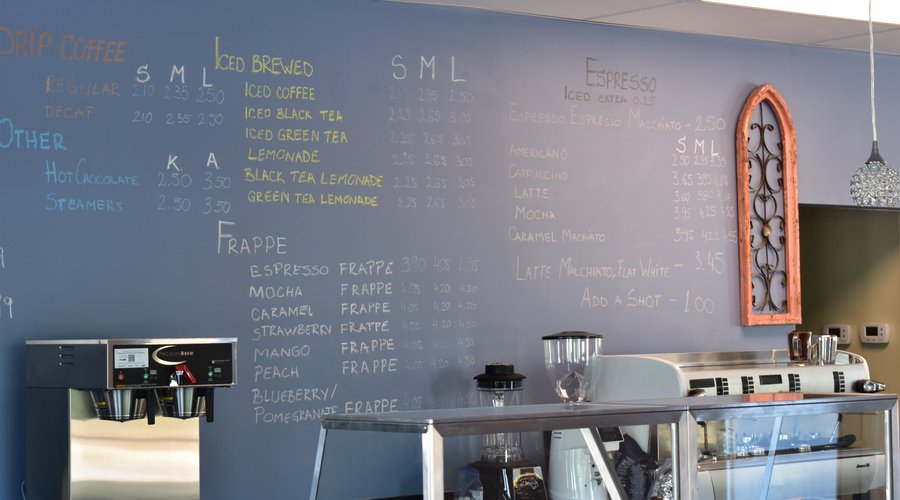 DRIP COFFEE
S M L
REGULAR 2.10 2.35 2.50
DECAF 2.10 2.35 2.50
OTHER
K A
HOT CHOCOLATE 2.50 3.50
STEAMERS 2.50 3.50
ICED BREWED
S M L
ICED COFFEE 2.10 2.35 2.50
ICED BLACK TEA 2.25 2.65 3.05
ICED GREEN TEA 2.25 2.65 3.05
LEMONADE 2.25 2.65 3.05
BLACK TEA LEMONADE 2.25 2.65 3.05
GREEN TEA LEMONADE 2.25 2.65 3.05
FRAPPE
ESPRESSO FRAPPE 3.90 4.05 4.35
MOCHA FRAPPE 4.05 4.20 4.50
CARAMEL FRAPPE 4.05 4.20 4.50
STRAWBERRY FRAPPE 4.05 4.20 4.50
MANGO FRAPPE 4.05 4.20 4.50
PEACH FRAPPE 4.05 4.20 4.50
BLUEBERRY/
POMEGRANATE FRAPPE
ESPRESSO
ICED EXTRA 0.25
ESPRESSO, ESPRESSO MACCHIATO - 2.50
S M L
AMERICANO 2.50 2.95
CAPPUCCINO 3.65 3.85 4.15
LATTE 3.60
MOCHA 3.95 4.25 4.55
CARAMEL MACHIATO 3.95 4.25 4.55
LATTE MACCHIATO, FLAT WHITE - 3.45
ADD A SHOT - 1.00
PRECISIONBREW